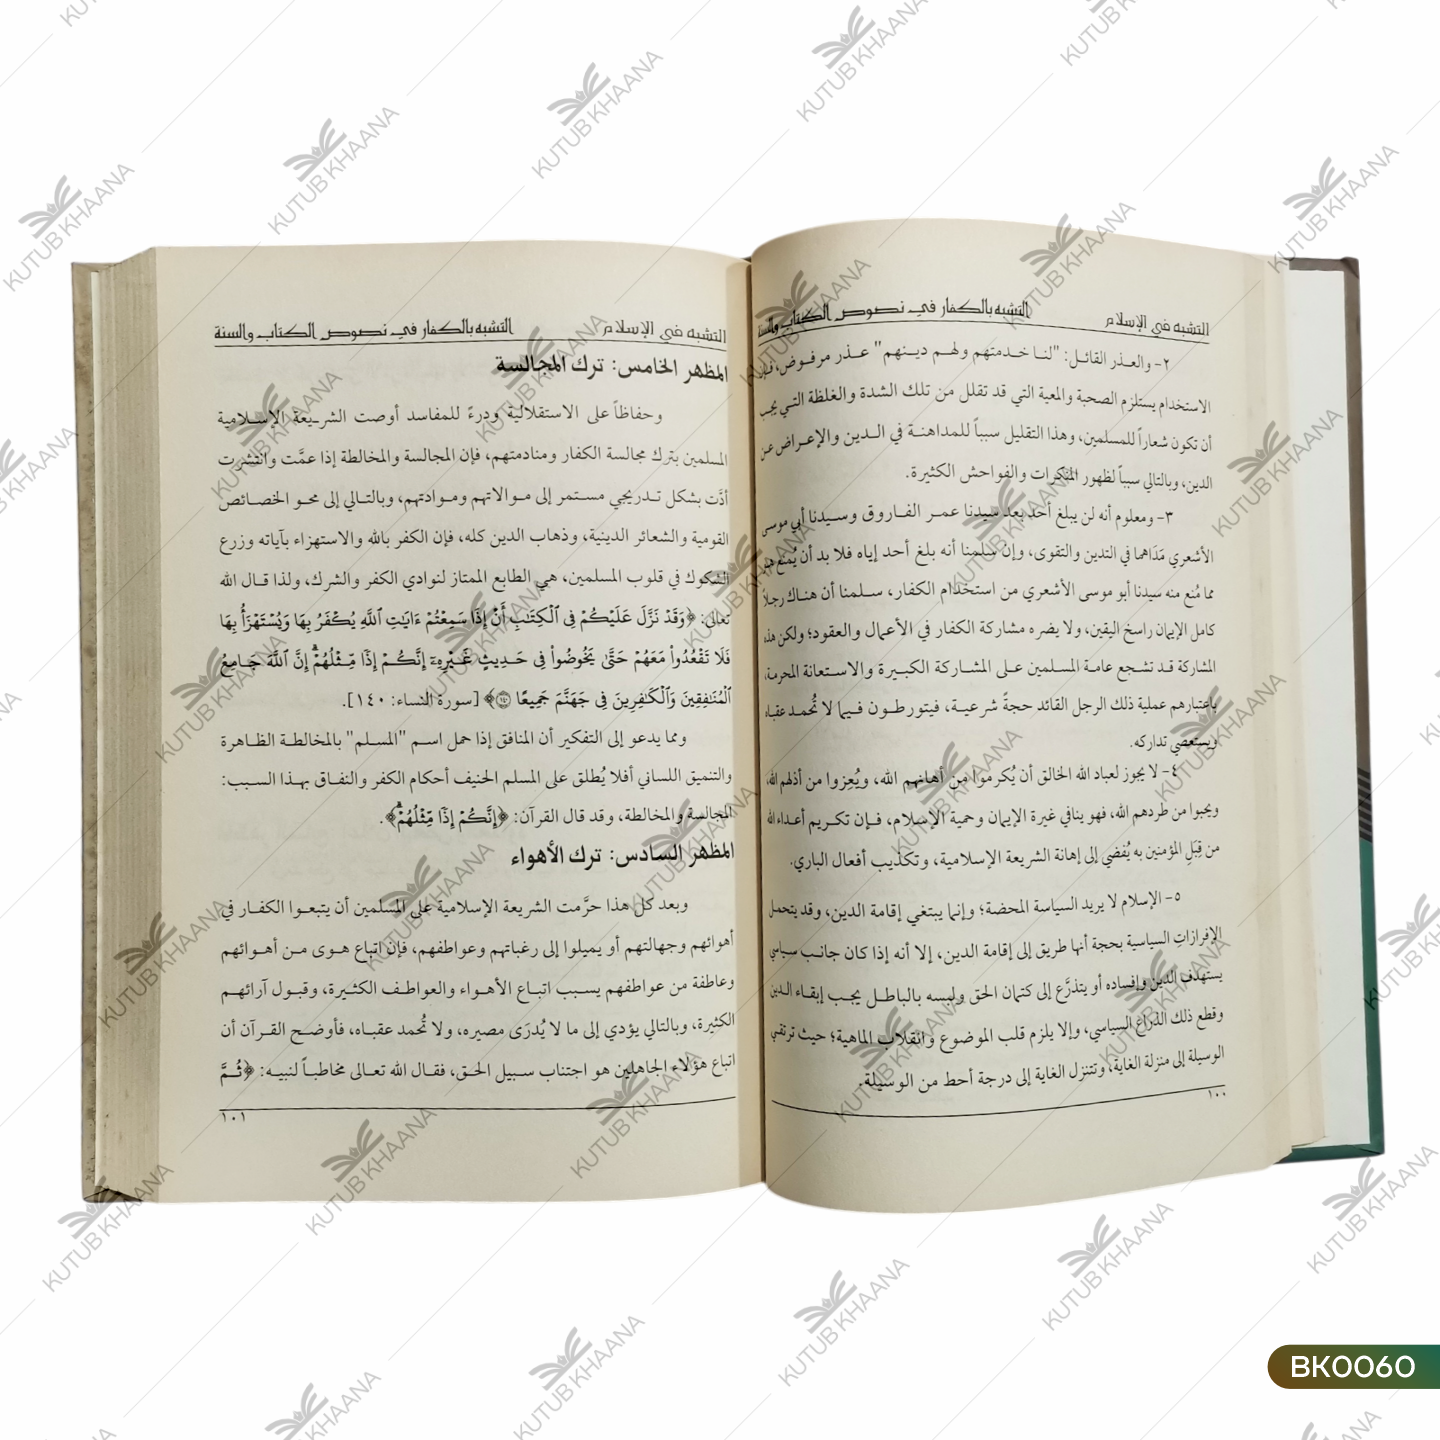 التشبه في الإسلام التشبه بالكفار في نصوص الكتاب والسنة
٢- والعذر القائل: "لنا خدمتهم ولهم دينهم" عذر مرفوض، فإن
الاستخدام يستلزم الصحبة والمعية التي قد تقلل من تلك الشدة والغلظة التي يجب
أن تكون شعاراً للمسلمين، وهذا التقليل سبباً للمداهنة في الدين والإعراض عن
الدين، وبالتالي سبباً لظهور المنكرات والفواحش الكثيرة.
٣- ومعلوم أنه لن يبلغ أحد بعد سيدنا عمر الفاروق وسيدنا أبي موسى
الأشعري مَدَاهما في التدين والتقوى، وإن سلمنا أنه بلغ أحد إياه فلا بد أن يُمنع هو
مما مُنع منه سيدنا أبو موسى الأشعري من استخدام الكفار، سلمنا أن هناك رجلاً
كامل الإيمان راسخ اليقين، ولا يضره مشاركة الكفار في الأعمال والعقود؛ ولكن هذه
المشاركة قد تشجع عامة المسلمين على المشاركة الكبيرة والاستعانة المحرمة،
باعتبارهم عملية ذلك الرجل القائد حجةً شرعية، فيتورطون فيما لا تُحمد عقباه
ويستعصي تداركه.
٤- لا يجوز لعباد الله الخالق أن يُكرموا من أهانهم الله، ويُعِزوا من أذلهم الله،
ويحبوا من طردهم الله، فهو ينافي غيرة الإيمان وحمية الإسلام، فإن تكريم أعداء الله
من قِبَلِ المؤمنين به يُفضي إلى إهانة الشريعة الإسلامية، وتكذيب أفعال الباري.
٥- الإسلام لا يريد السياسة المحضة؛ وإنما يبتغي إقامة الدين، وقد يتحمل
الإفرازاتِ السياسية بحجة أنها طريق إلى إقامة الدين، إلا أنه إذا كان جانب سياسي
يستهدف الدين وإفساده أو يتذرَّع إلى كتمان الحق ولبسه بالباطل يجب إبقاء الدين
وقطع ذلك الذراع السياسي، وإلا يلزم قلب الموضوع وانقلاب الماهية؛ حيث ترتقي
الوسيلة إلى منزلة الغاية، وتتنزل الغاية إلى درجة أحط من الوسيلة.
١٠٠
التشبه في الإسلام التشبه بالكفار في نصوص الكتاب والسنة
المظهر الخامس: ترك المجالسة
وحفاظاً على الاستقلالية ودرءً للمفاسد أوصت الشريعة الإسلامية
المسلمين بترك مجالسة الكفار ومنادمتهم، فإن المجالسة والمخالطة إذا عمَّت وانتشرت
أدَّت بشكل تدريجي مستمر إلى موالاتهم وموادتهم، وبالتالي إلى محو الخصائص
القومية والشعائر الدينية، وذهاب الدين كله، فإن الكفر بالله والاستهزاء بآياته وزرع
الشكوك في قلوب المسلمين، هي الطابع الممتاز لنوادي الكفر والشرك، ولذا قال الله
تعالى: ﴿وَقَدْ نَزَّلَ عَلَيْكُمْ فِى ٱلْكِتَٰبِ أَنْ إِذَا سَمِعْتُمْ ءَايَٰتِ ٱللَّهِ يُكْفَرُ بِهَا وَيُسْتَهْزَأُ بِهَا
فَلَا تَقْعُدُوا۟ مَعَهُمْ حَتَّىٰ يَخُوضُوا۟ فِى حَدِيثٍ غَيْرِهِۦٓ إِنَّكُمْ إِذًا مِّثْلُهُمْ ۗ إِنَّ ٱللَّهَ جَامِعُ
ٱلْمُنَٰفِقِينَ وَٱلْكَٰفِرِينَ فِى جَهَنَّمَ جَمِيعًا ۝١٤٠﴾ [سورة النساء: ١٤٠].
ومما يدعو إلى التفكير أن المنافق إذا حمل اسم "المسلم" بالمخالطة الظاهرة
والتنميق اللساني أفلا يُطلق على المسلم الحنيف أحكام الكفر والنفاق بهذا السبب:
المجالسة والمخالطة، وقد قال القرآن: ﴿إِنَّكُمْ إِذًا مِّثْلُهُمْ ۗ﴾.
المظهر السادس: ترك الأهواء
وبعد كل هذا حرَّمت الشريعة الإسلامية على المسلمين أن يتبعوا الكفار في
أهوائهم وجهالتهم أو يميلوا إلى رغباتهم وعواطفهم، فإن اتباع هوى من أهوائهم
وعاطفة من عواطفهم يسبب اتباع الأهواء والعواطف الكثيرة، وقبول آرائهم
الكثيرة، وبالتالي يؤدي إلى ما لا يُدرَى مصيره، ولا تُحمد عقباه، فأوضح القرآن أن
اتباع هؤلاء الجاهلين هو اجتناب سبيل الحق، فقال الله تعالى مخاطباً لنبيه: ﴿ثُمَّ
١٠١
KUTUB KHAANA
BK0060